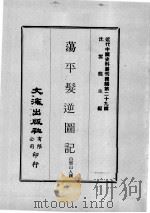 近代中國史料叢刊續編第二十九輯
沈雲龍主編
蕩平髮逆圖記
白雲山人編
文海出版社有限公司印行